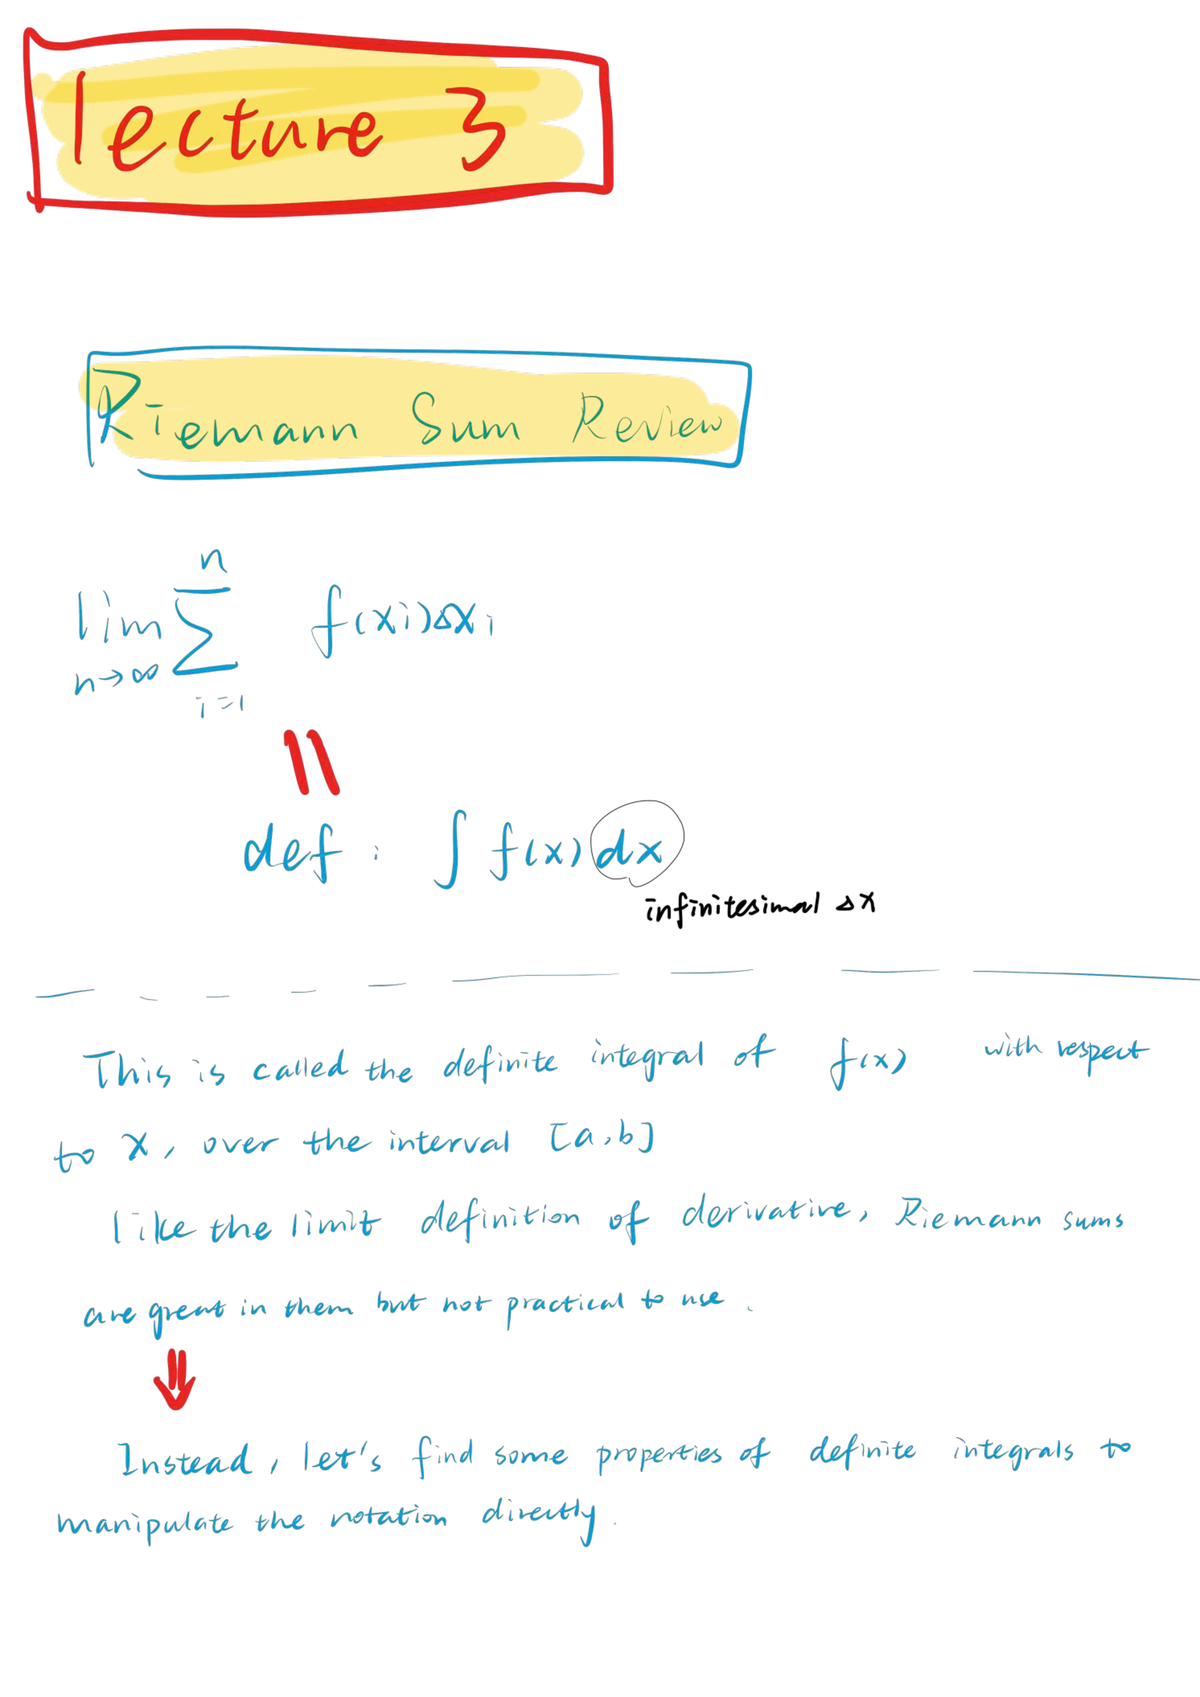 lecture 3
Riemann Sum Review
n
lim ∑ f(xi)Δxi
n→∞
i=1
||
def : ∫ f(x) dx
infinitesimal Δx
This is called the definite integral of f(x) with respect
to x, over the interval [a,b]
like the limit definition of derivative, Riemann sums
are great in them but not practical to use.
⇓
Instead, let's find some properties of definite integrals to
manipulate the notation directly.